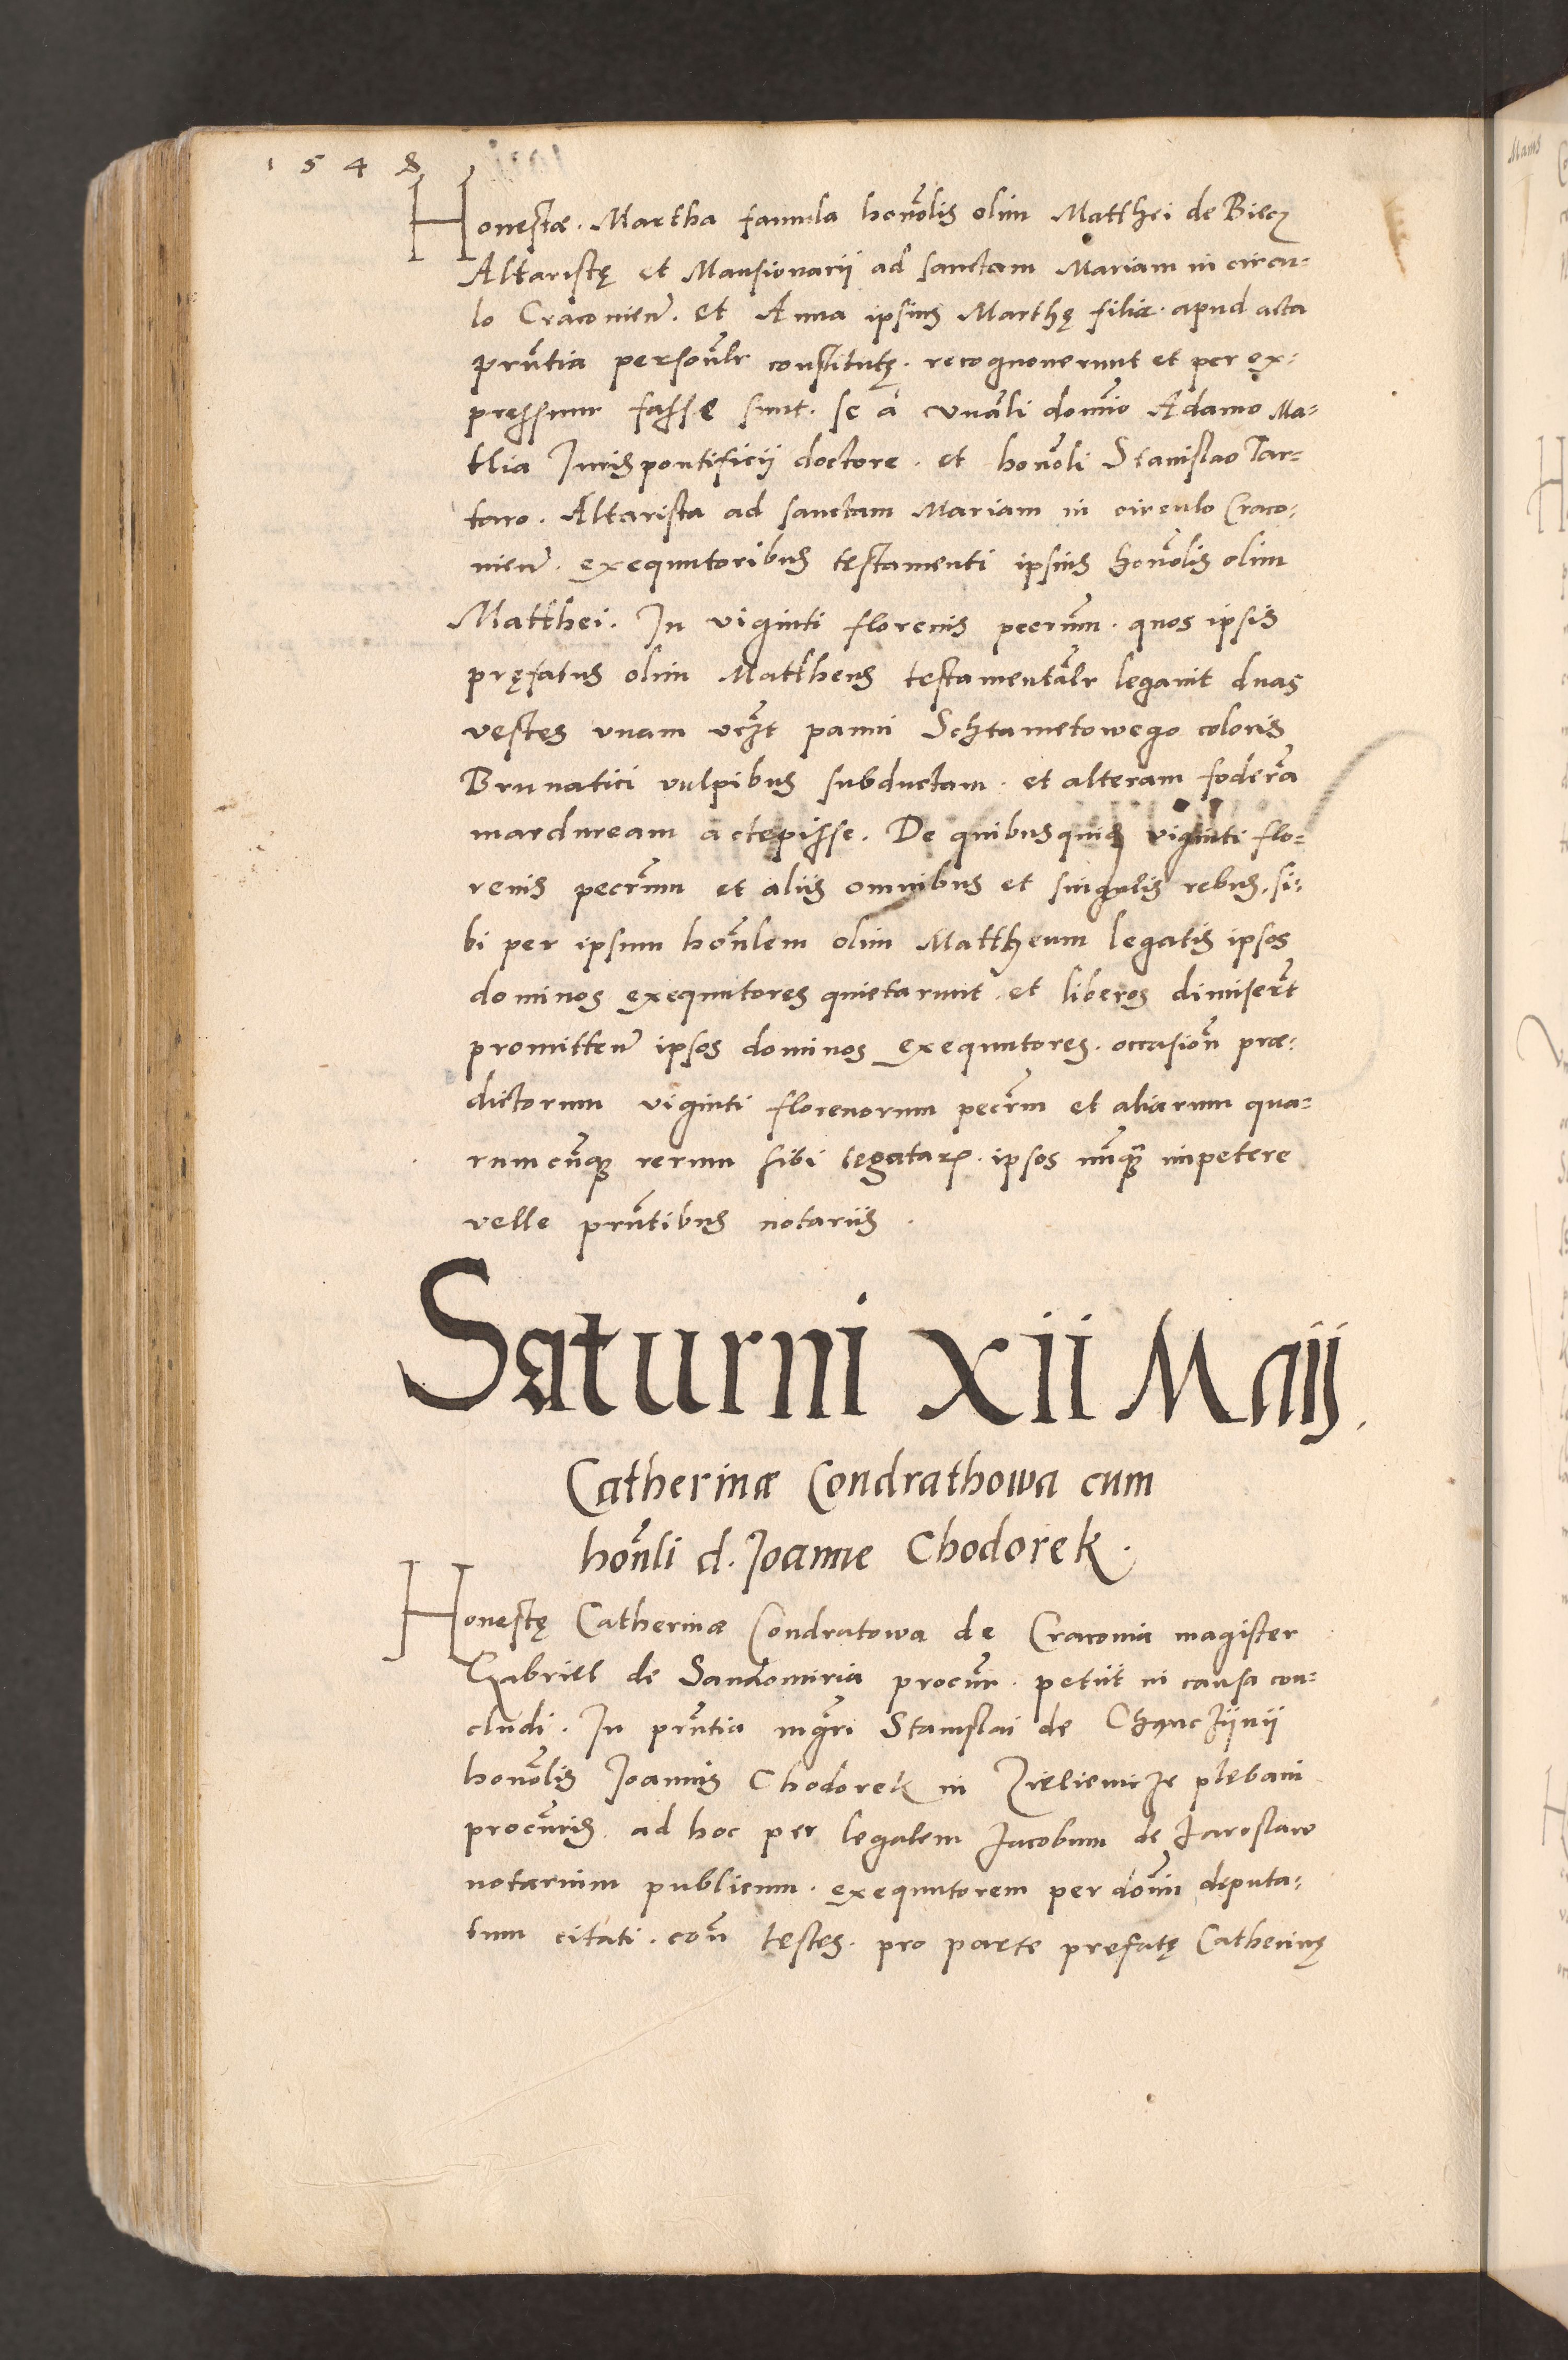 1548
Honestæ. Martha famula honorãlis olim Matthei de Biecz
Altaristę et Mansionarii ad sanctam Mariam in circu-
lo Cracovien̄. et Anna ipsius Marthę filia. apud acta
prñtia persoñlr constitutę. recognoverunt et per ex-
pressum fassę sunt. se a vñãli domĩo Adamo Ma-
thia Juris pontificii doctore. et honõli Stanislao Tar-
taro. Altarista ad sanctam Mariam in circulo Craco-
vien̄. exequutoribus testamenti ipsius honõlis olim
Matthei. In viginti florenis pecrñm. quos ipsis
pręfatus olim Mattheus testamentãlr legavit duas
vestes unam vczt panni Schtametowego coloris
Brunatici vulpibus subductam. et alteram fodera͂
mardurream accepisse. De quibusquid. viginti flo-
renis pecrñm et aliis omnibus et singulis rebus. si-
bi per ipsum hoñlem olim Mattheum legatis ipsos
dominos exequutores quietarunt. et liberos dimisert̃
promitten̄ ipsos dominos exequutores. occasion̄ præ-
dictorum viginti florenorum pecrm̃ et aliarum qua-
rumcũqꝫ rerum sibi legataꝝ. ipsos nũqꝫ impetere
velle prñtibus notariis.
Saturni XII Maij.
Catherinæ Condrathowa cum
hoñli d. Joanne Chodorek.
Honestę Catherinæ Condratowa de Cracovia magister
Gabriel de Sandomiria procũr. petiit in causa con-
cludi. In prñtia mgr̃i Stanislai de Chęnczijnij
honõlis Joannis Chodorek in Zielienicze plebani
procũris. ad hoc per legalem Jacobum de Jaroslaw
notarium publicum. exequutorem per doñm deputa-
tum citati. coñ testes. pro parte prefatę Catherinę